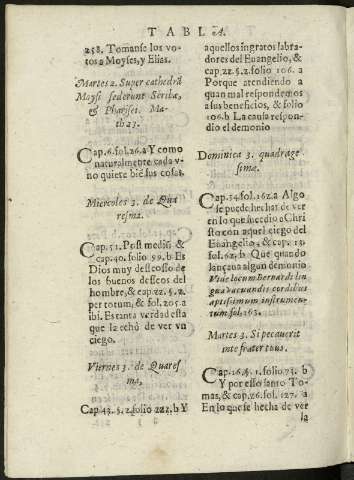 TABLA.
258. Tomanse los vo-
tos a Moyses, y Elias.
Martes 2. Super cathedrã
Moysi sederunt Scribæ,
& Pharisei. Ma-
th 23.
Cap. 6. fol. 26. a Y como
naturalmente cada v-
no quiere biẽ sus cosas.
Miercoles 3. de Qua
resma.
Cap. 51. Post mediũ, &
cap. 40. folio 99. b Es
Dios muy desseoso de
los buenos desseos del
hombre, & cap. 22. §. 2.
per totum, & fol. 205. a
ibi. Es tanta verdad esta
que la echò de ver vn
ciego.
Viernes 3. de Quares-
ma,
Cap. 43. §. 2. folio 222. b Y
aquellos ingratos labra-
dores del Euangelio, &
cap. 22. §. 2. folio 106. a
Porque atendiendo a
quan mal respondemos
a sus beneficios, & folio
106. b La causa respon-
dio el demonio
Dominica 3. quadrage
simæ.
Cap. 34. fol. 162. a Algo
se puede hechar de ver
en lo que sucedio a Chri
sto con aquel ciego del
Euangelio, & cap. 13.
fol. 62. b Que quando
lançaua algun demonio
Vide locum Bernardi lin
gua facundis cordibus
aptissimum instrumen-
tum fol. 163.
Martes 3. Si peccauerit
in te frater tuus.
Cap. 16. §. 1. folio 73. b
Y por ello santo To-
mas, & cap. 26. fol. 127. a
En lo que se hecha de ver
la